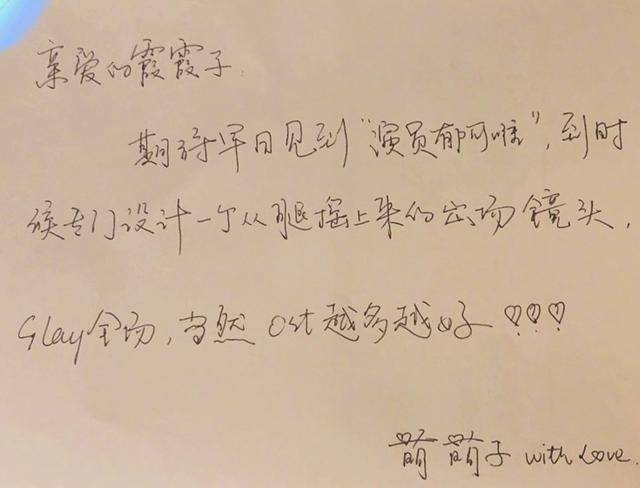 亲爱的霞霞子
期待早日见到“演员郁可唯”,到时
候专门设计一个从腿摇上来的出场镜头,
Slay全场,当然 Ost越多越好 ♡♡♡
萌萌子 with Love.